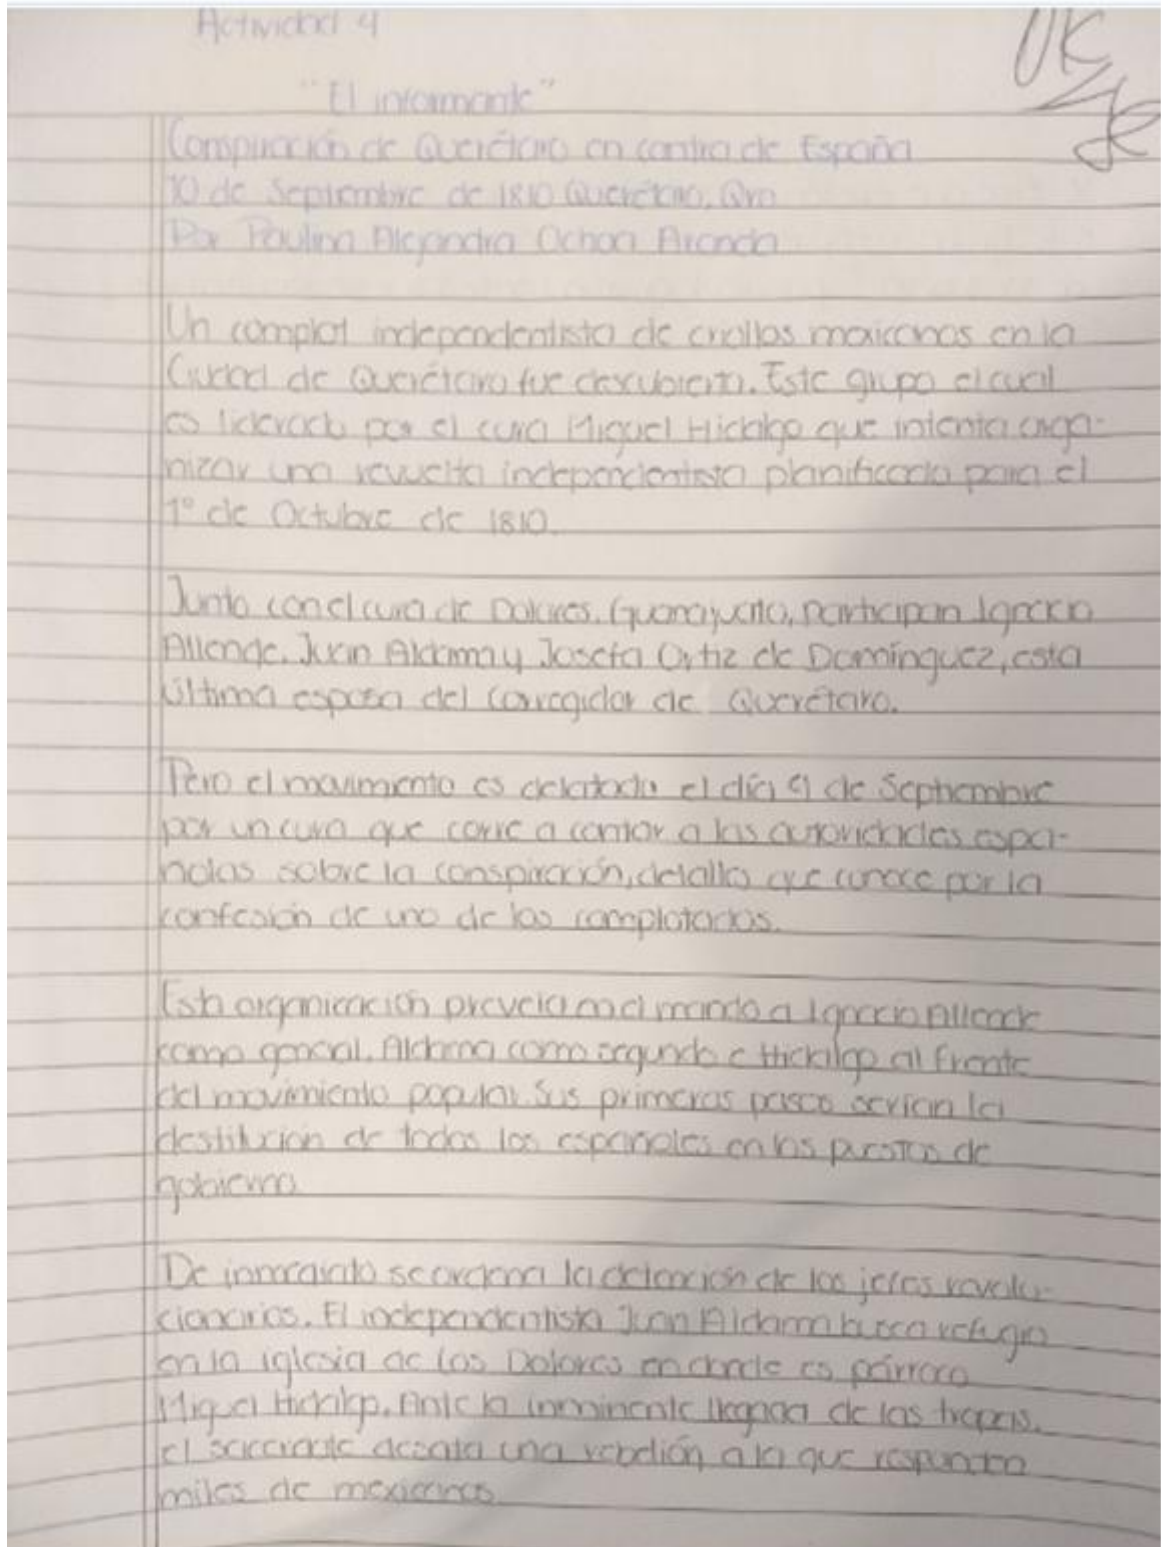 Actividad 4
OK
"El informante"
Conspiración de Querétaro en contra de España
10 de Septiembre de 1810 Querétaro, Qro
Por Paulina Alejandra Ochoa Aranda
Un complot independentista de criollos mexicanos en la
Ciudad de Querétaro fue descubierto. Este grupo el cual
es liderado por el cura Miguel Hidalgo que intenta orga-
nizar una revuelta independentista planificada para el
1° de Octubre de 1810.
Junto con el cura de Dolores, Guanajuato, participan Ignacio
Allende, Juan Aldama y Josefa Ortiz de Domínguez, esta
última esposa del corregidor de Querétaro.
Pero el movimiento es delatado el día 9 de Septiembre
por un cura que corre a contar a las autoridades espa-
ñolas sobre la conspiración, detalles que conoce por la
confesión de uno de los complotados.
Esta organización preveia en el mando a Ignacio Allende
como general, Aldama como segundo e Hidalgo al frente
del movimiento popular. Sus primeros pasos serían la
destitucion de todos los españoles en los puestos de
gobierno.
De inmediato se ordena la detención de los jefes revolu-
cionarios. El independentista Juan Aldama busca refugio
en la iglesia de los Dolores en donde es párroco
Miguel Hidalgo. Ante la inminente llegada de las tropas,
el sacerdote desata una rebelión a la que responden
miles de mexicanos